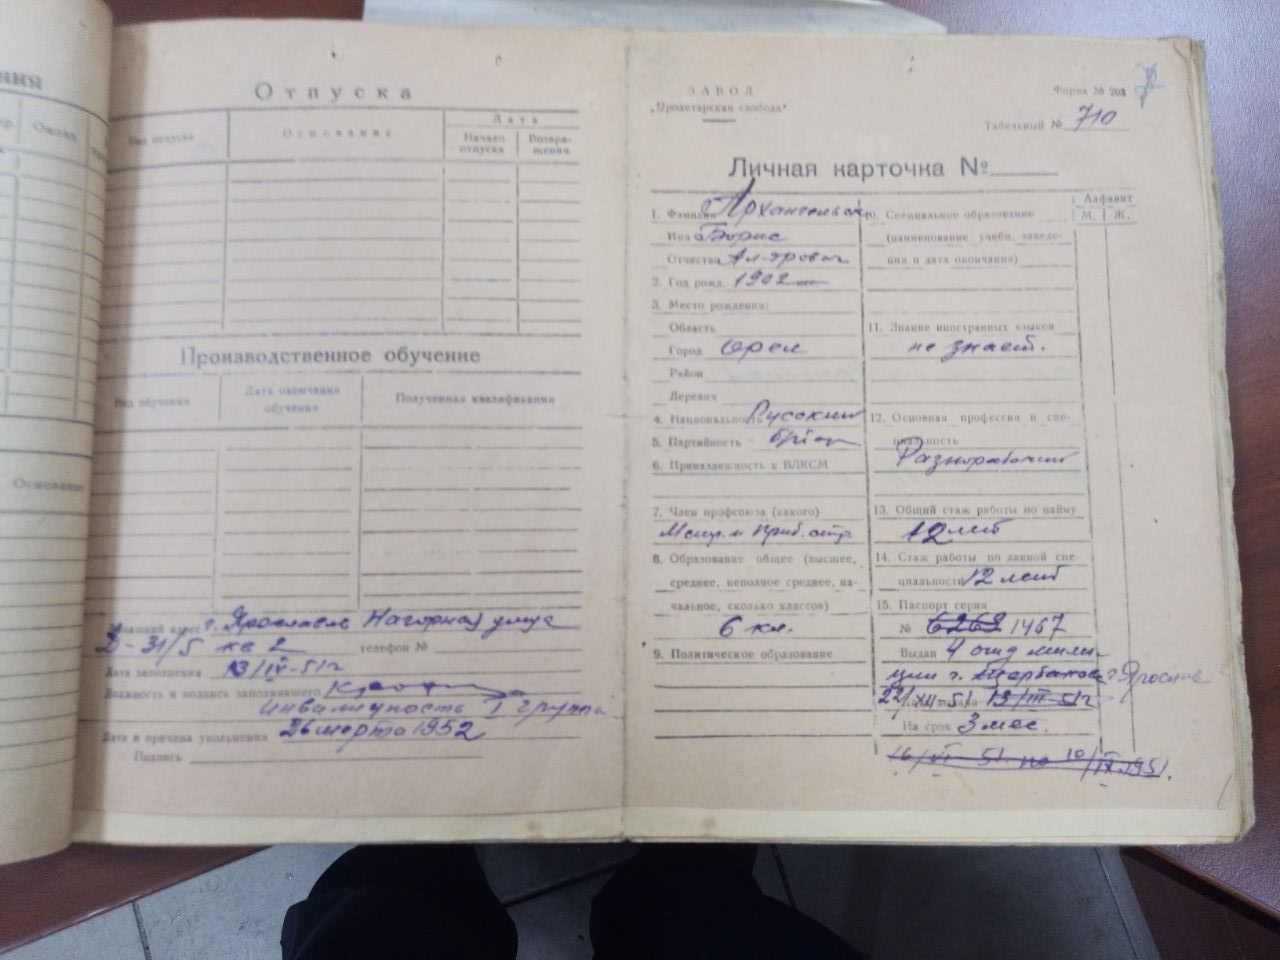 ния
Оклад
Основание
Отпуска
Вид отпуска
Основание
Дата
Начало отпуска
Возвра-
щения
Производственное обучение
Вид обучения
Дата окончания обучения
Полученная квалификация
Домашний адрес г. Ярославль Нагорная улица
Д-31/5 кв 2 телефон №
Дата заполнения 13/IV-51г
Должность и подпись заполнявшего
инвалидность I группы
Дата и причина увольнения 26 марта 1952
Подпись
ЗАВОД
„Пролетарская свобода"
Форма № 203
Табельный № 710
Личная карточка №
1. Фамилия Архангельск
Имя Борис
Отчество Ал-дрович
2. Год рожд. 1902
3. Место рождения:
Область
Город Орел
Район
Деревня
4. Националь­ность Русский
5. Партийность б/п
6. Принадлежность к ВЛКСМ
7. Член профсоюза (какого)
8. Образование общее (высшее,
среднее, неполное среднее, на-
чальное, сколько классов)
6 кл.
9. Политическое образование
Алфавит
М. Ж.
10. Специальное образование
(наименование учебн. заведе-
ния и дата окончания)
11. Знание иностранных языков
не знает.
12. Основная профессия и спе-
циальность
Разнорабочий
13. Общий стаж работы по найму
12 лет
14. Стаж работы по данной спе-
циальности 12 лет
15. Паспорт серия
№ 6263 1467
Выдан 4 отд мили-
ции г. Щербаков г. Ярославль
22/XII-51 13/III-51г
На срок 3 мес.
16/VI-51. по 10/IX 1951.